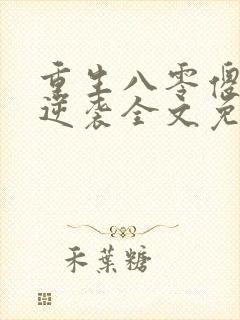 重生八零傻
逆袭全文免
禾葉糖